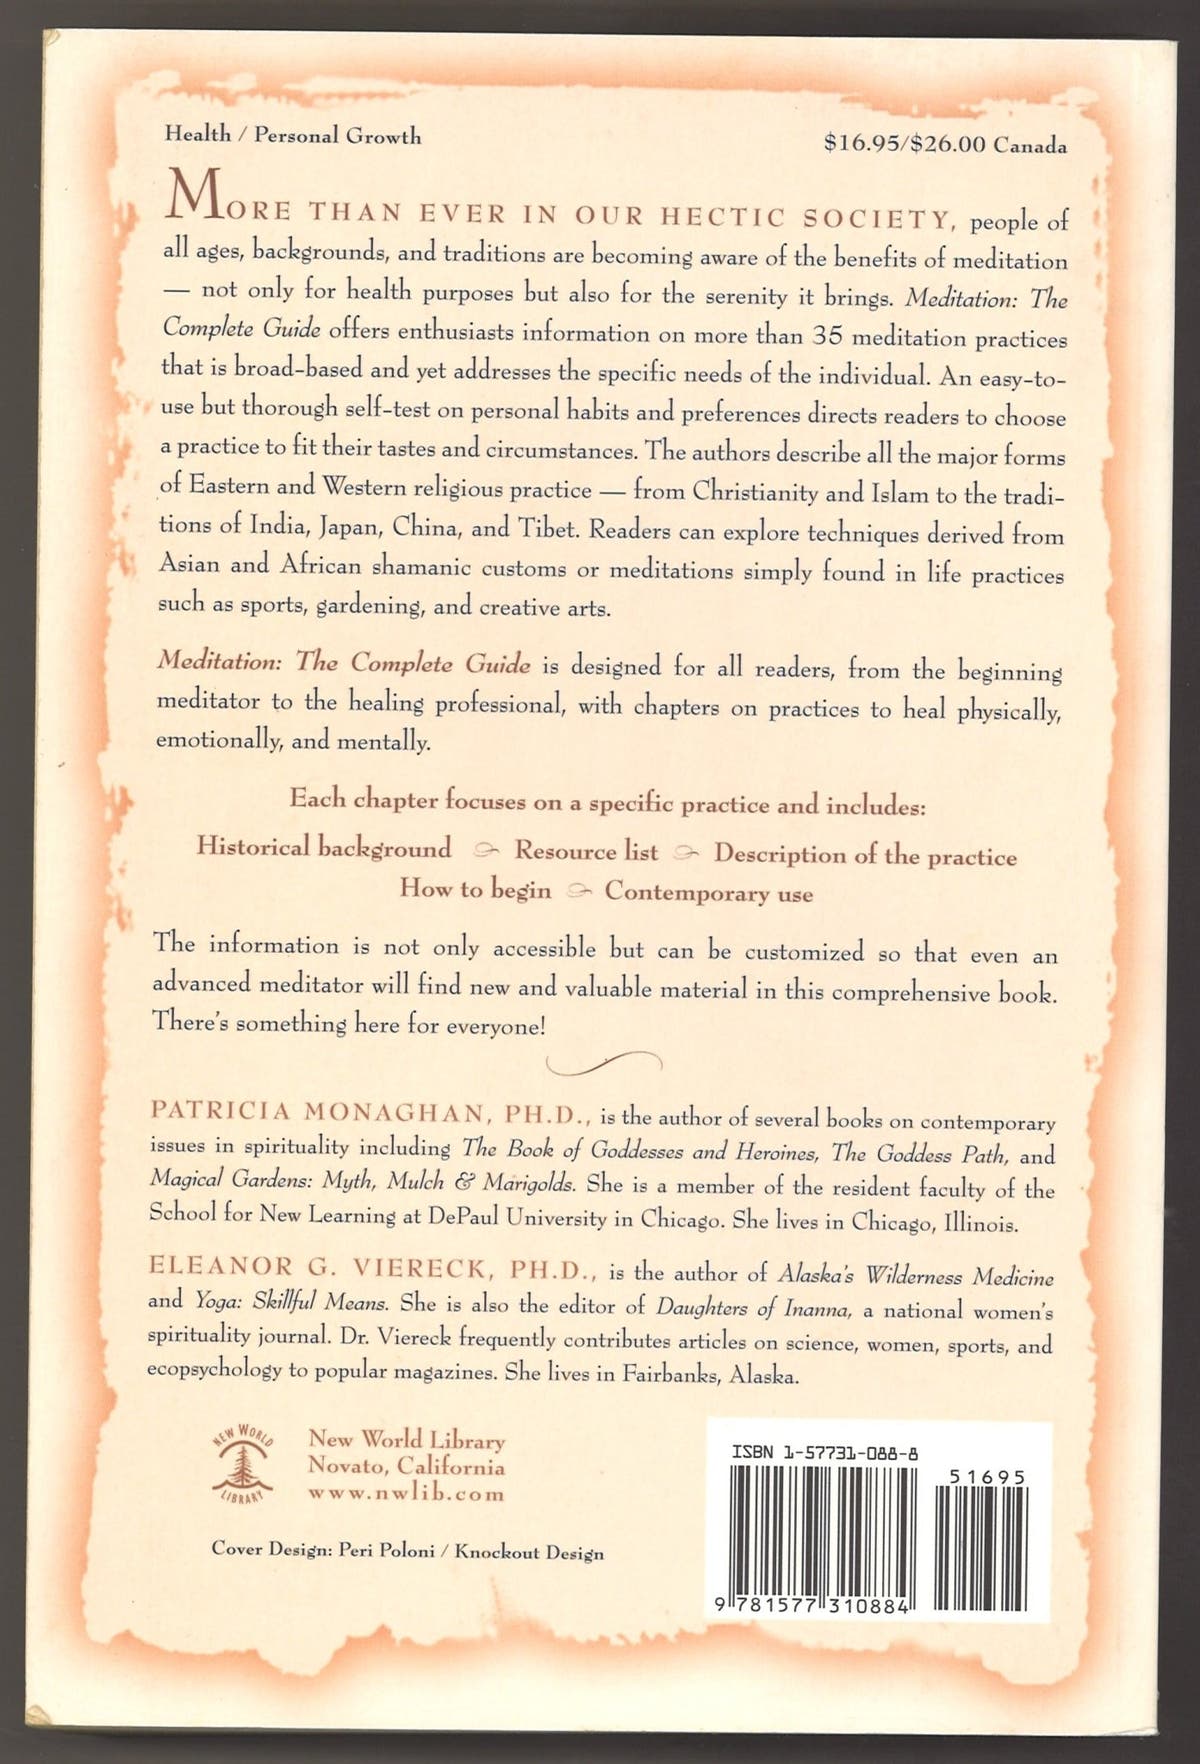 Health / Personal Growth
$16.95/$26.00 Canada
MORE THAN EVER IN OUR HECTIC SOCIETY, people of
all ages, backgrounds, and traditions are becoming aware of the benefits of meditation
— not only for health purposes but also for the serenity it brings. Meditation: The
Complete Guide offers enthusiasts information on more than 35 meditation practices
that is broad-based and yet addresses the specific needs of the individual. An easy-to-
use but thorough self-test on personal habits and preferences directs readers to choose
a practice to fit their tastes and circumstances. The authors describe all the major forms
of Eastern and Western religious practice — from Christianity and Islam to the tradi-
tions of India, Japan, China, and Tibet. Readers can explore techniques derived from
Asian and African shamanic customs or meditations simply found in life practices
such as sports, gardening, and creative arts.
Meditation: The Complete Guide is designed for all readers, from the beginning
meditator to the healing professional, with chapters on practices to heal physically,
emotionally, and mentally.
Each chapter focuses on a specific practice and includes:
Historical background Resource list Description of the practice
How to begin Contemporary use
The information is not only accessible but can be customized so that even an
advanced meditator will find new and valuable material in this comprehensive book.
There's something here for everyone!
PATRICIA MONAGHAN, PH.D., is the author of several books on contemporary
issues in spirituality including The Book of Goddesses and Heroines, The Goddess Path, and
Magical Gardens: Myth, Mulch & Marigolds. She is a member of the resident faculty of the
School for New Learning at DePaul University in Chicago. She lives in Chicago, Illinois.
ELEANOR G. VIERECK, PH.D., is the author of Alaska's Wilderness Medicine
and Yoga: Skillful Means. She is also the editor of Daughters of Inanna, a national women's
spirituality journal. Dr. Viereck frequently contributes articles on science, women, sports, and
ecopsychology to popular magazines. She lives in Fairbanks, Alaska.
NEW WORLD
LIBRARY
New World Library
Novato, California
www.nwlib.com
Cover Design: Peri Poloni / Knockout Design
ISBN 1-57731-088-8
51695
9 781577 310884